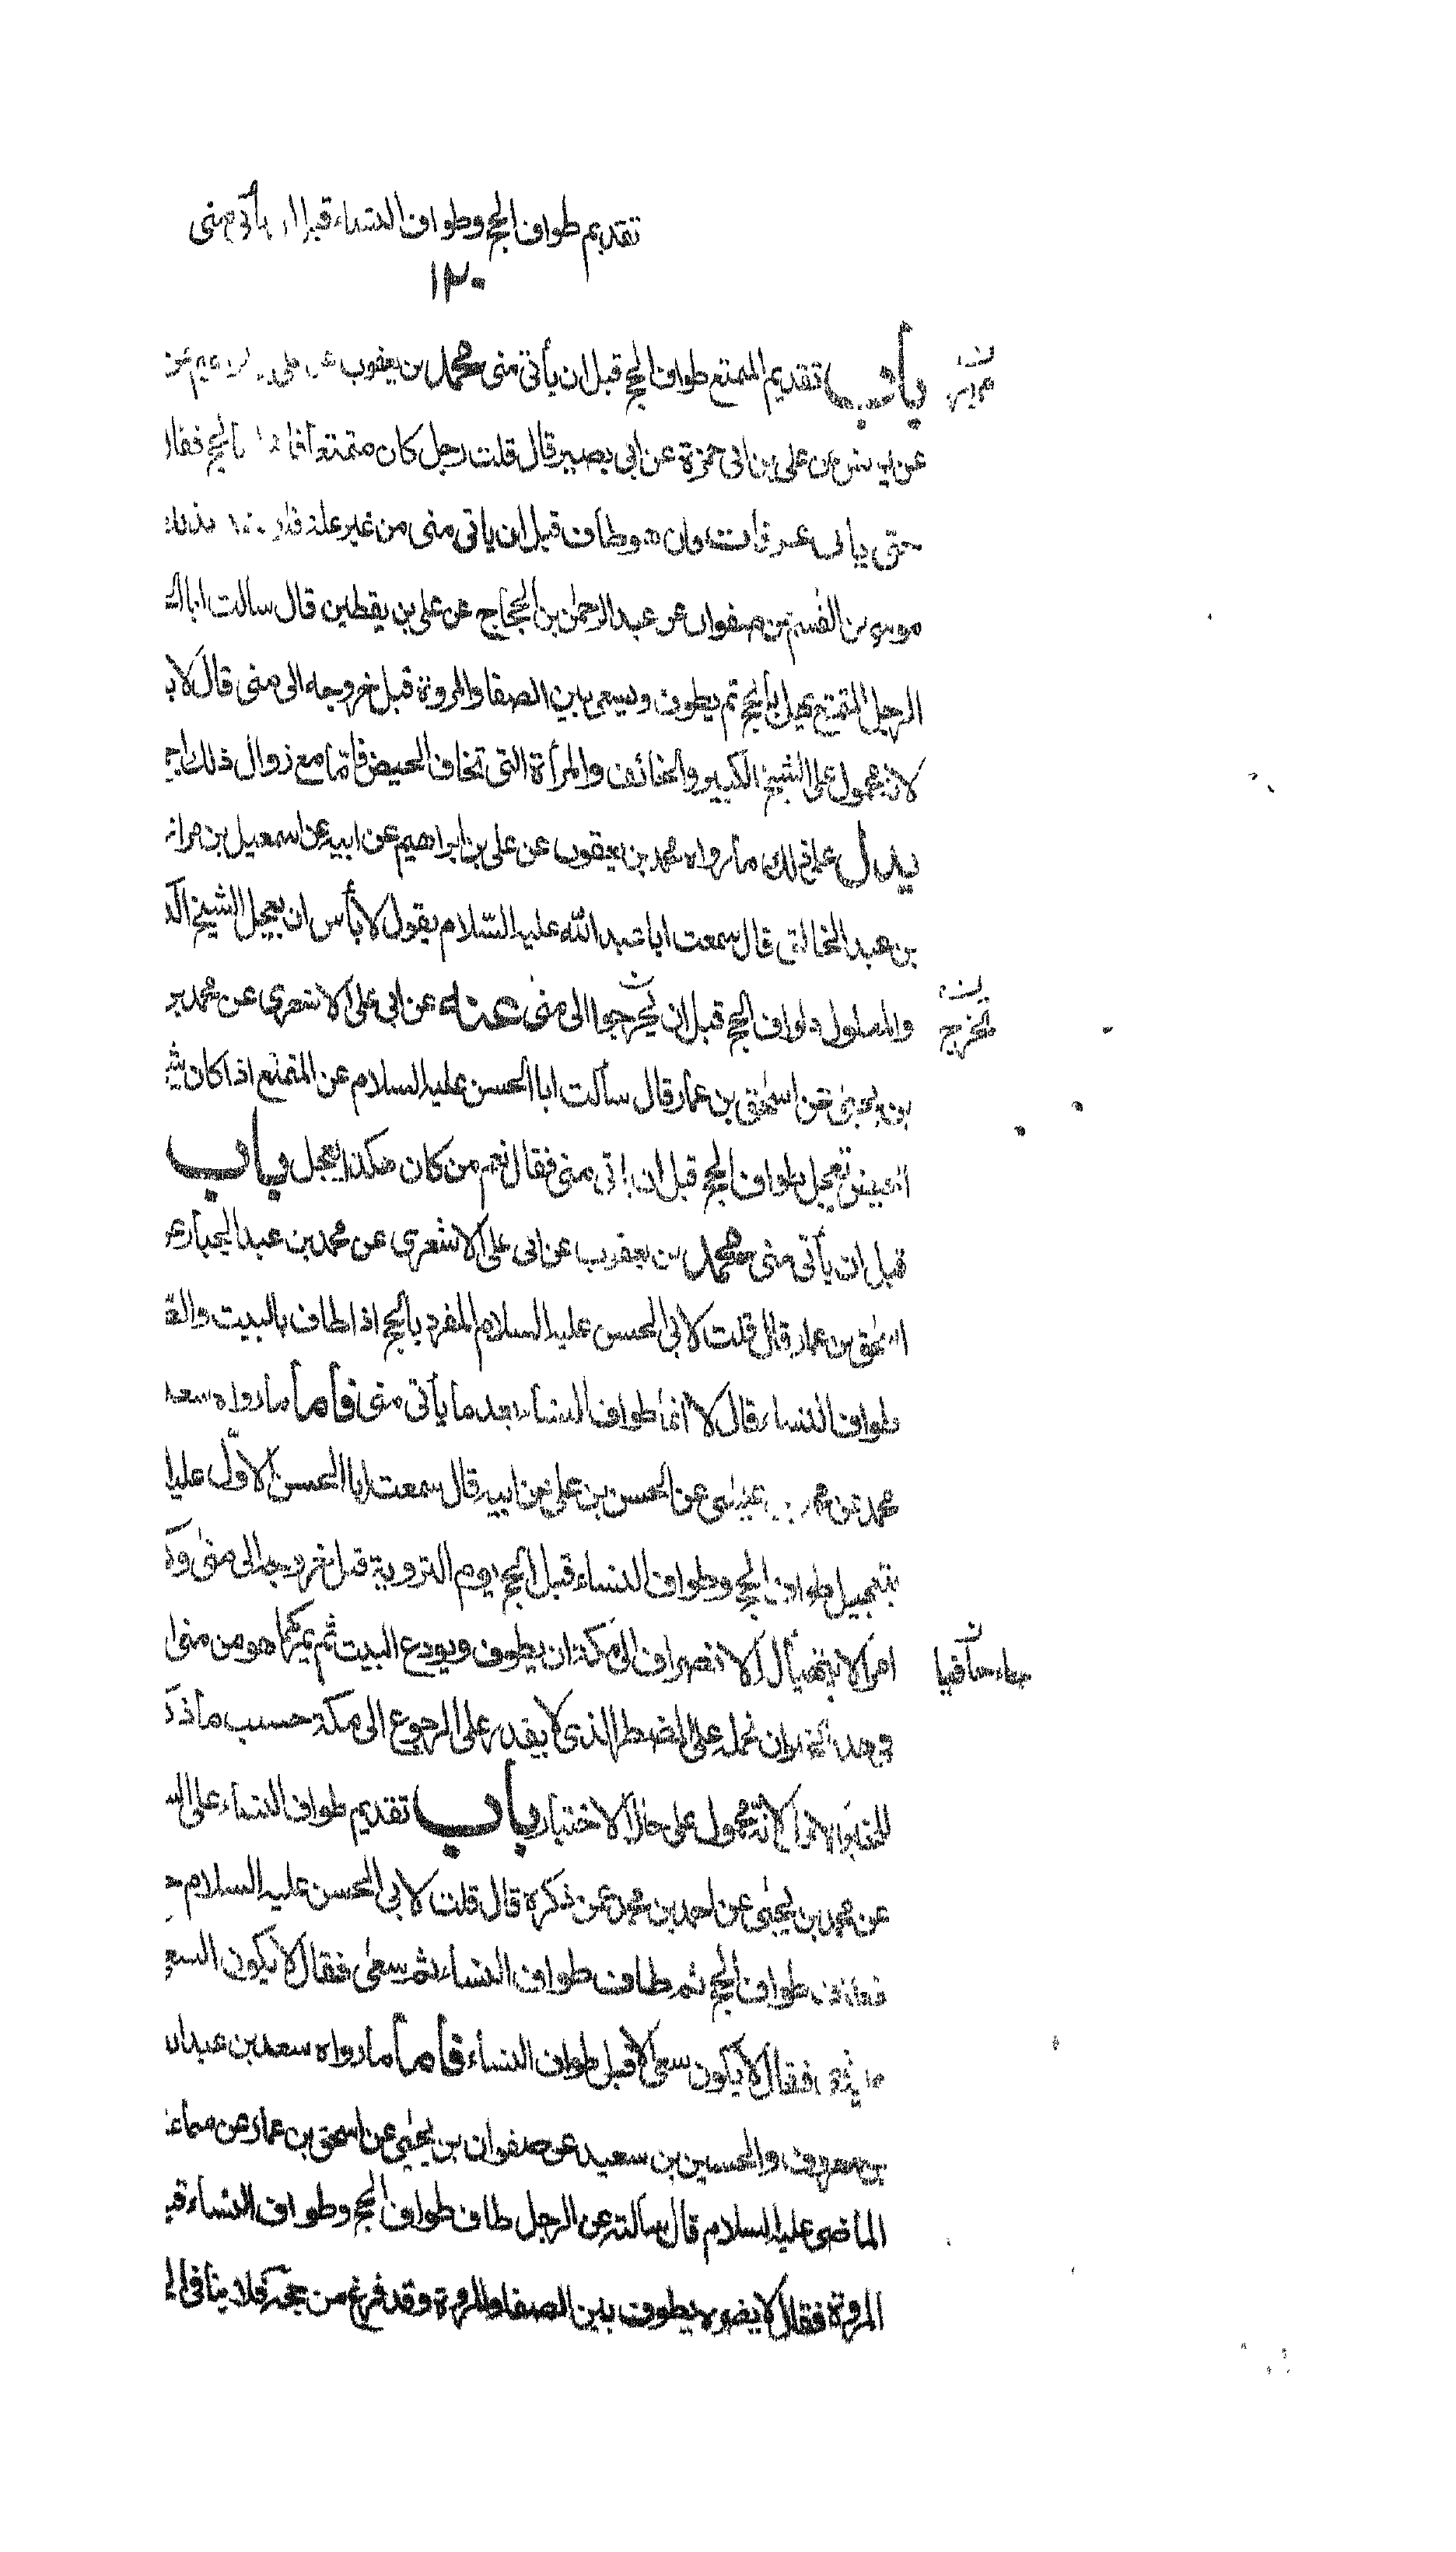 تقديم طواف الحج وطواف النساء قبل ان يأتي منى
١٢٠
باب تقديم المتمتع طواف الحج قبل ان يأتى منى محمد بن يعقوب عن على بن
عن يونس عن على بن ابى حمزة عن ابى بصير قال قلت رجل كان متمتعا بالحج فقال
حتى ياتى عرفات وان هو طاف قبل ان ياتى منى من غير علة فلا بذلك
موسى بن القسم عن صفوان عن عبد الرحمن بن الحجاج عن على بن يقطين قال سألت ابا
الرجل المتمتع يهل بالحج ثم يطوف ويسعى بين الصفا والمروة قبل خروجه الى منى قال لا
لانه محمول على الشيخ الكبير والخائف والمرأة التى تخاف الحيض فاما مع زوال ذلك
يدل على ذلك ما رواه محمد بن يعقوب عن على بن ابراهيم عن ابيه عن اسمعيل بن مرار
بن عبد الخالق قال سمعت ابا عبد الله عليه السلام يقول لا بأس ان يعجل الشيخ
ن يخرج
والمعلول طواف الحج قبل ان يخرجوا الى منى عنه عن ابى على الاشعرى عن محمد
بن يحيى عن اسحق بن عمار قال سألت ابا الحسن عليه السلام عن المتمتع اذا كان
الحيض تعجل طواف الحج قبل ان ياتى منى فقال نعم من كان هكذا يعجل باب
قبل ان يأتى منى محمد بن يعقوب عن ابى على الاشعرى عن محمد بن عبد الجبار
اسحق بن عمار قال قلت لابى الحسن عليه السلام المفرد بالحج اذا طاف بالبيت
طواف النساء قال لا انما طواف النساء بعد ما يأتى منى فأما ما رواه سعد
محمد عن عيسى عن الحسن بن على عن ابيه قال سمعت ابا الحسن الاول
بتعجيل طواف الحج وطواف النساء قبل الحج يوم التروية قبل خروجه الى منى
امر لا يتهيأ له الانصراف الى مكة ان يطوف ويودع البيت ثم يمر كما هو من منى
ان نحمله على المضطر الذى لا يقدر على الرجوع الى مكة حسب ما
لانه محمول على حال الاختيار باب تقديم طواف النساء على
عن محمد بن يحيى عن احمد بن محمد عمن ذكره قال قلت لابى الحسن عليه السلام
طواف الحج ثم طاف طواف النساء ثم سعى فقال لا يكون
فقال لا يكون سعى الا قبل طواف النساء فأما ما رواه سعد بن
بن معروف والحسين بن سعيد عن صفوان بن يحيى عن اسحق بن عمار عن سماعة
الماضى عليه السلام قال سألته عن الرجل طاف طواف الحج وطواف النساء
المروة فقال لا يضره يطوف بين الصفا والمروة وقد فرغ من حجه فلا ينافى